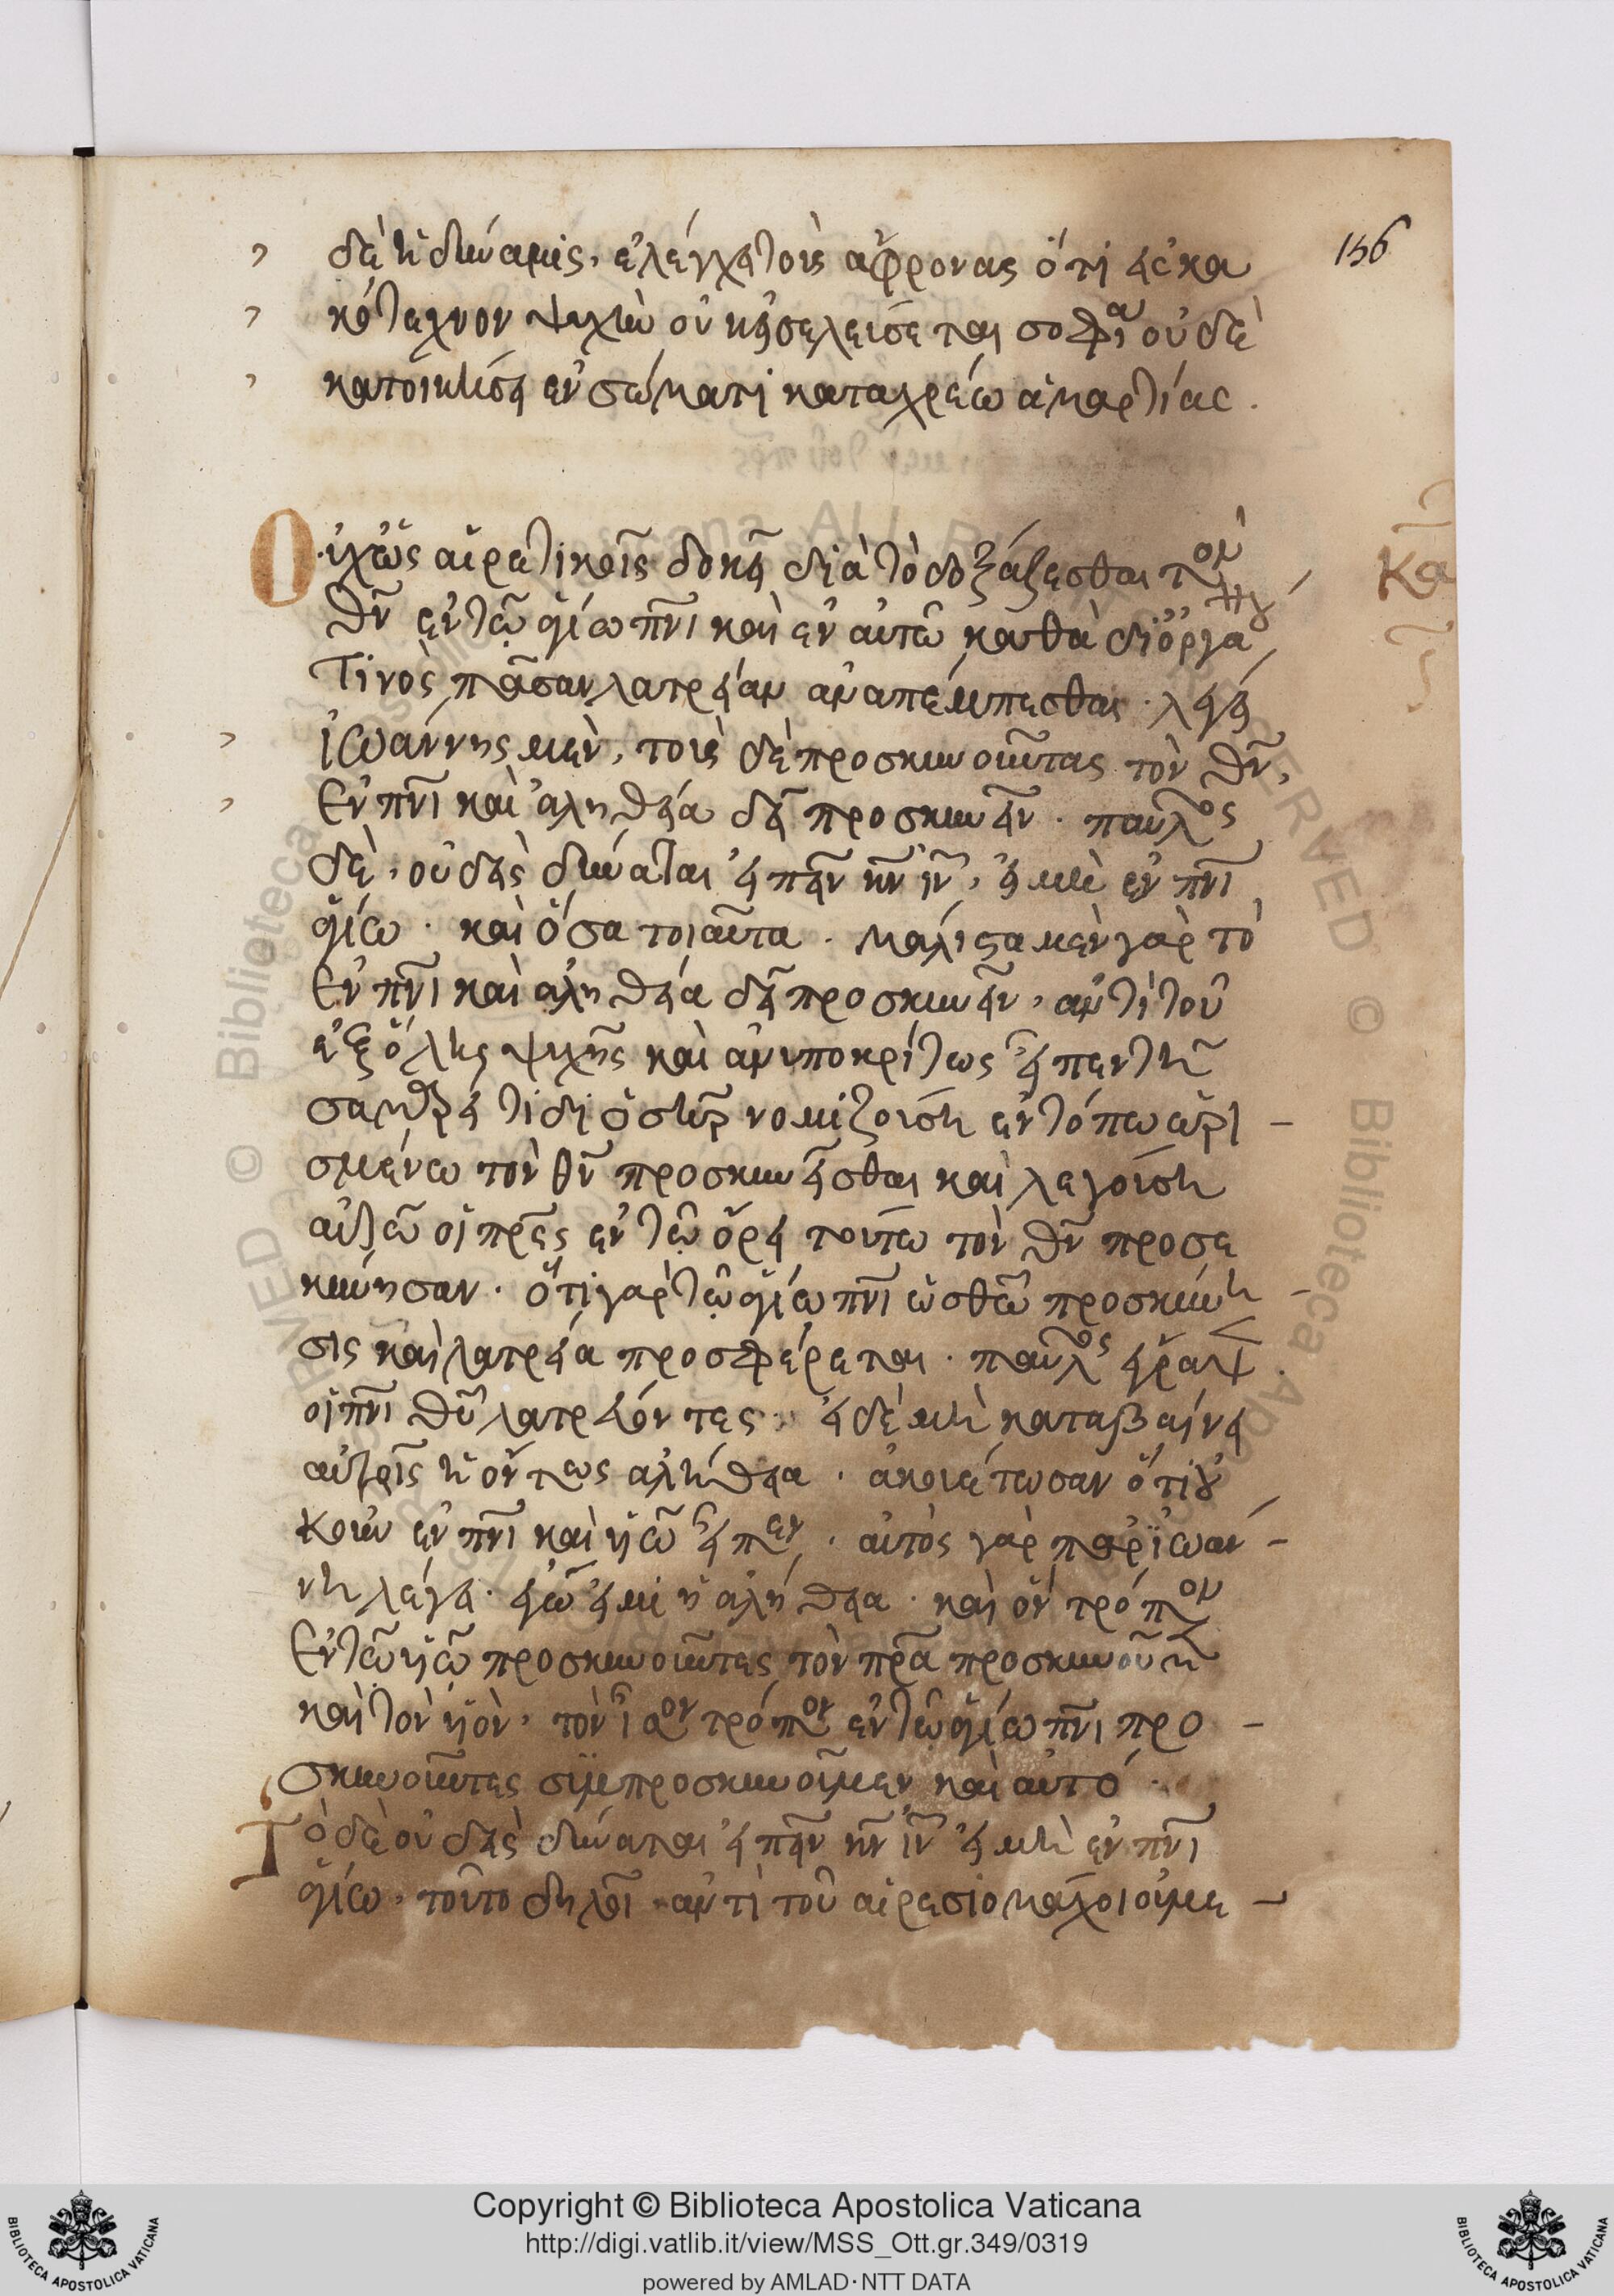 156
δὲ ἡ δύναμις, ἐλέγχει τοὺς ἄφρονας ὅτι εἰς κα
κότεχνον ψυχὴν οὐκ εἰσελεύσεται σοφία οὐδὲ
κατοικήσει ἐν σώματι καταχρέω ἁμαρτίας.
Οὐχ ὡς αἱρετικοῖς δοκεῖ διὰ τὸ δοξάζεσθαι τὸν
θν ἐν τῶ ἁγίω πνι καὶ ἐν αὐτῶ καθὰ δι ὀργά
τινὸς πᾶσαν λατρείαν ἀναπέμπεσθαι. λέγει
ἰωάννης μὲν, τοὺς δὲ προσκυνοῦντας τὸν θν,
ἐν πνι καὶ ἀληθεία δεῖ προσκυνεῖν. παῦλος
δὲ, οὐδεὶς δύναται εἰπεῖν κν ιν, εἰ μὴ ἐν πνι
ἁγίω. καὶ ὅσα τοιαῦτα. μάλιστα μὲν γὰρ τὸ
ἐν πνι καὶ ἀληθεία δεῖ προσκυνεῖν, ἀντὶ τοῦ
ἐξ ὅλης ψυχῆς καὶ ἀνυποκρίτως εἶπεν τῆ
νομιζούση ἐν τόπω ὡρι
σμένω τὸν θν προσκυνεῖσθαι καὶ λεγούση
αὐτῶ οἱ πρες ἐν τῶ ὄρει τούτω τὸν θν προσε
κύνησαν. ὅτι γὰρ τῶ ἁγίω πνι ὡς θῶ προσκύνη
σις καὶ λατρεία προσφέρεται. παῦλος γράψ
οἱ πνι θυ λατρεύοντες. εἰ δὲ μὴ καταβαίνει
αὐτοῖς ἡ ὄντως ἀλήθεια. ἀκουέτωσαν ὅτι οὐ
κοῦν ἐν πνι καὶ υἱῶ εἶπεν. αὐτὸς γὰρ παρ ἰωάν
νη λέγει. ἐγώ εἰμι ἡ ἀλήθεια. καὶ ὃν τρόπον
ἐν τῶ υἱῶ προσκυνοῦντες τὸν πρα προσκυνοῦμεν
καὶ τὸν υἱὸν, τὸν ἴσον τρόπον ἐν τῶ ἁγίω πνι προ
σκυνοῦντες συμπροσκυνοῦμεν καὶ αὐτό.
Τὸ δὲ οὐδεὶς δύναται εἰπεῖν κν ιν εἰ μὴ ἐν πνι
ἁγίω, τοῦτο δηλοῖ ἀντὶ τοῦ αἱρεσιομάχοι οἰμε
Copyright © Biblioteca Apostolica Vaticana
http://digi.vatlib.it/view/MSS_Ott.gr.349/0319
powered by AMLAD·NTT DATA
BIBLIOTECA APOSTOLICA VATICANA
BIBLIOTECA APOSTOLICA VATICANA